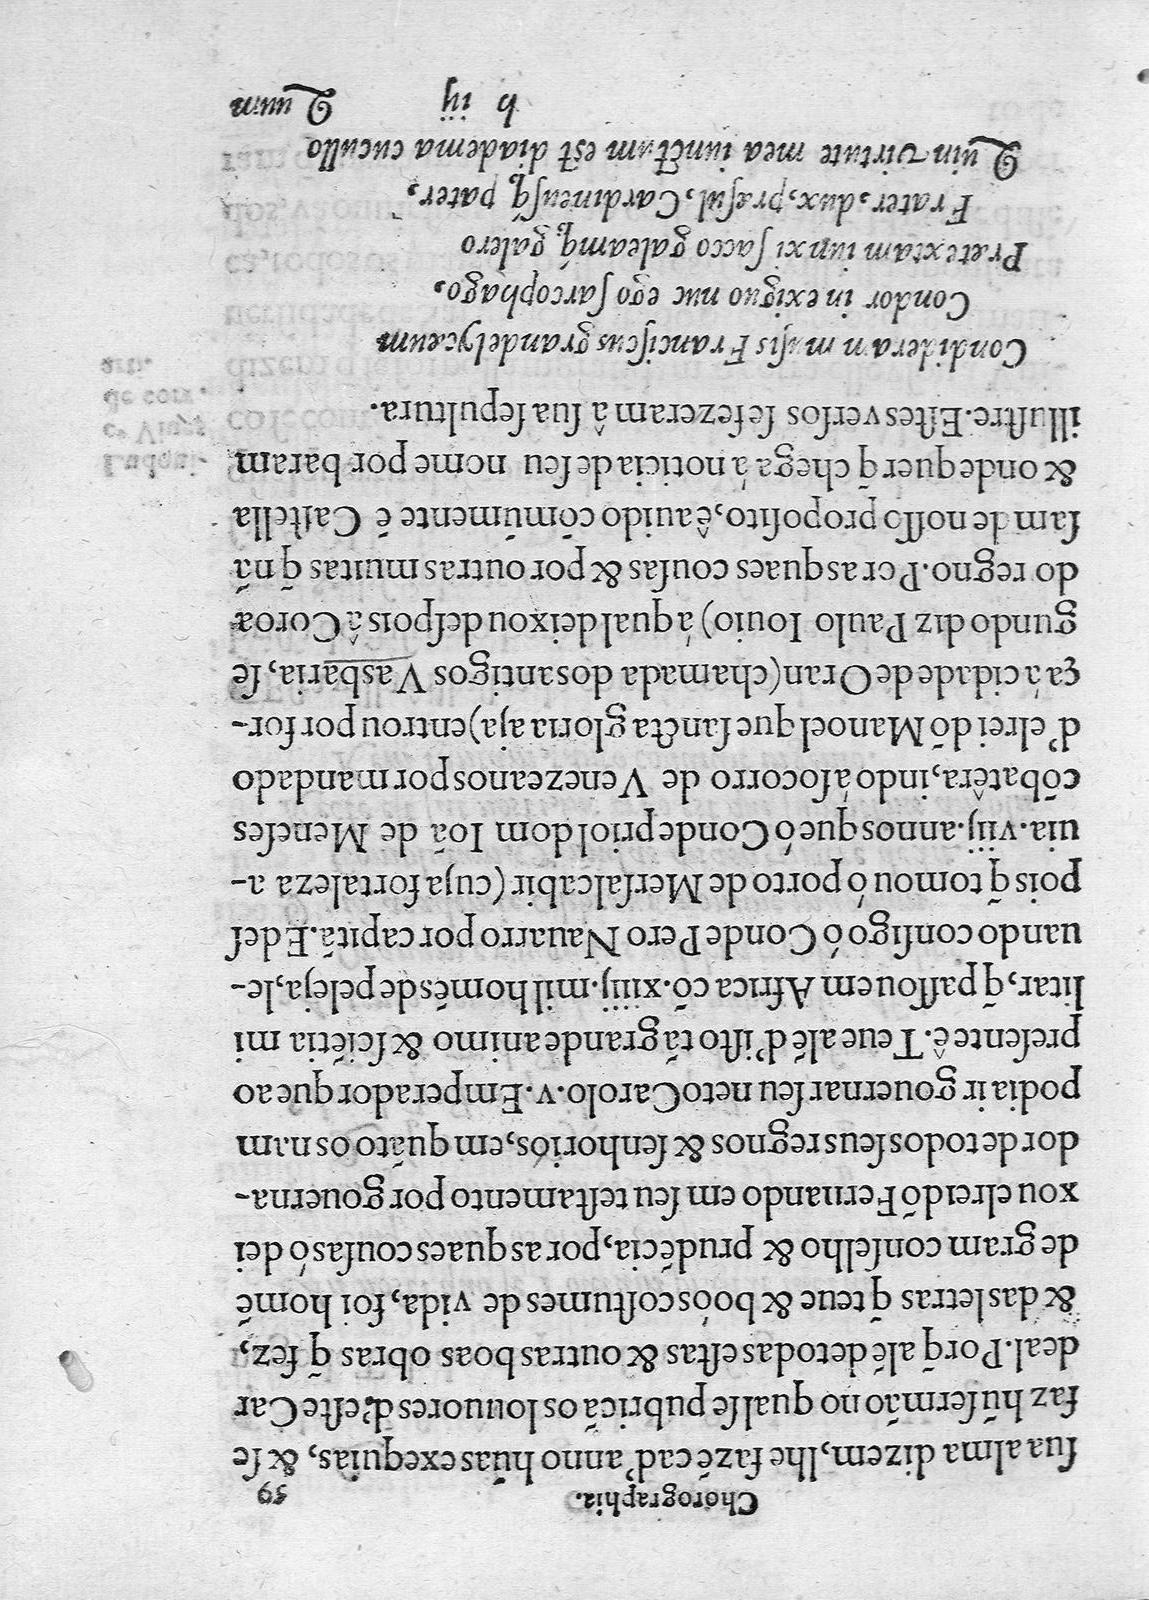 Chorographia. 59
ſua alma dizem, lhe fazẽ cad'anno hũas exequias, & ſe
faz hũ ſermão no qual ſe pubricã os louuores d'eſte Car
deal. Porq̃ alẽ de todas eſtas & outras boas obras q̃ fez,
& das letras q̃ teue & boós coſtumes de vida, foi homẽ
de gram conſelho & prudẽcia, por as quaes couſas ó dei
xou elrei dõ Fernando em ſeu teſtamento por gouerna-
dor de todos ſeus regnos & ſenhorios, em quãto os nam
podia ir gouernar ſeu neto Carolo. v. Emperador que ao
preſente ê. Teue alẽ d'iſto tã grande animo & ſciẽtia mi
litar, q̃ paſſou em Africa cõ. xiiij. mil homẽs de peleja, le-
uando conſigo ó Conde Pero Nauarro por capitã. E deſ
pois q̃ tomou ó porto de Merſalcabir (cuja fortaleza a-
uia. viij. annos que ó Conde prior dom Ioã de Meneſes
cõbatêra, indo á ſocorro de Venezeanos por mandado
d'elrei dõ Manoel que ſancta gloria aja) entrou por for-
ça á cidade de Oran (chamada dos antigos Vasbaria, ſe
gundo diz Paulo Iouio) á qual deixou deſpois â Coroa
do regno. Por as quaes couſas & por outras muitas q̃ nã
ſam de noſſo propoſito, ê auido cõmũmente ẽ Caſtella
& onde quer q̃ chega á noticia de ſeu nome por baram
illuſtre. Eſtes verſos ſe fezeram â ſua ſepultura.
Condideram muſis Franciſcus grande lycæum
Condor in exiguo nuc ego ſarcophago,
Prætextam iunxi ſacco galeamq́; galero
Frater, dux, præſul, Cardineuſq́; pater,
Quin virtute mea iunctum eſt diadema cucullo
b iij Quum